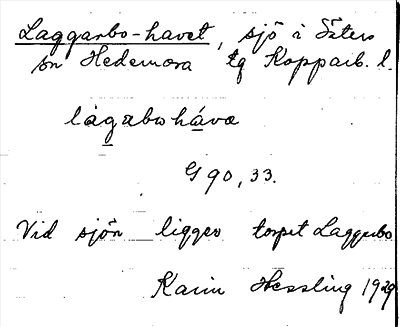 Laggarbo-havet, sjö i Säters
sn Hedemora tg Kopparb. l.
lágabohávæ
G 90, 33.
Vid sjön ligger torpet Laggarbo
Karin Hessling 1929